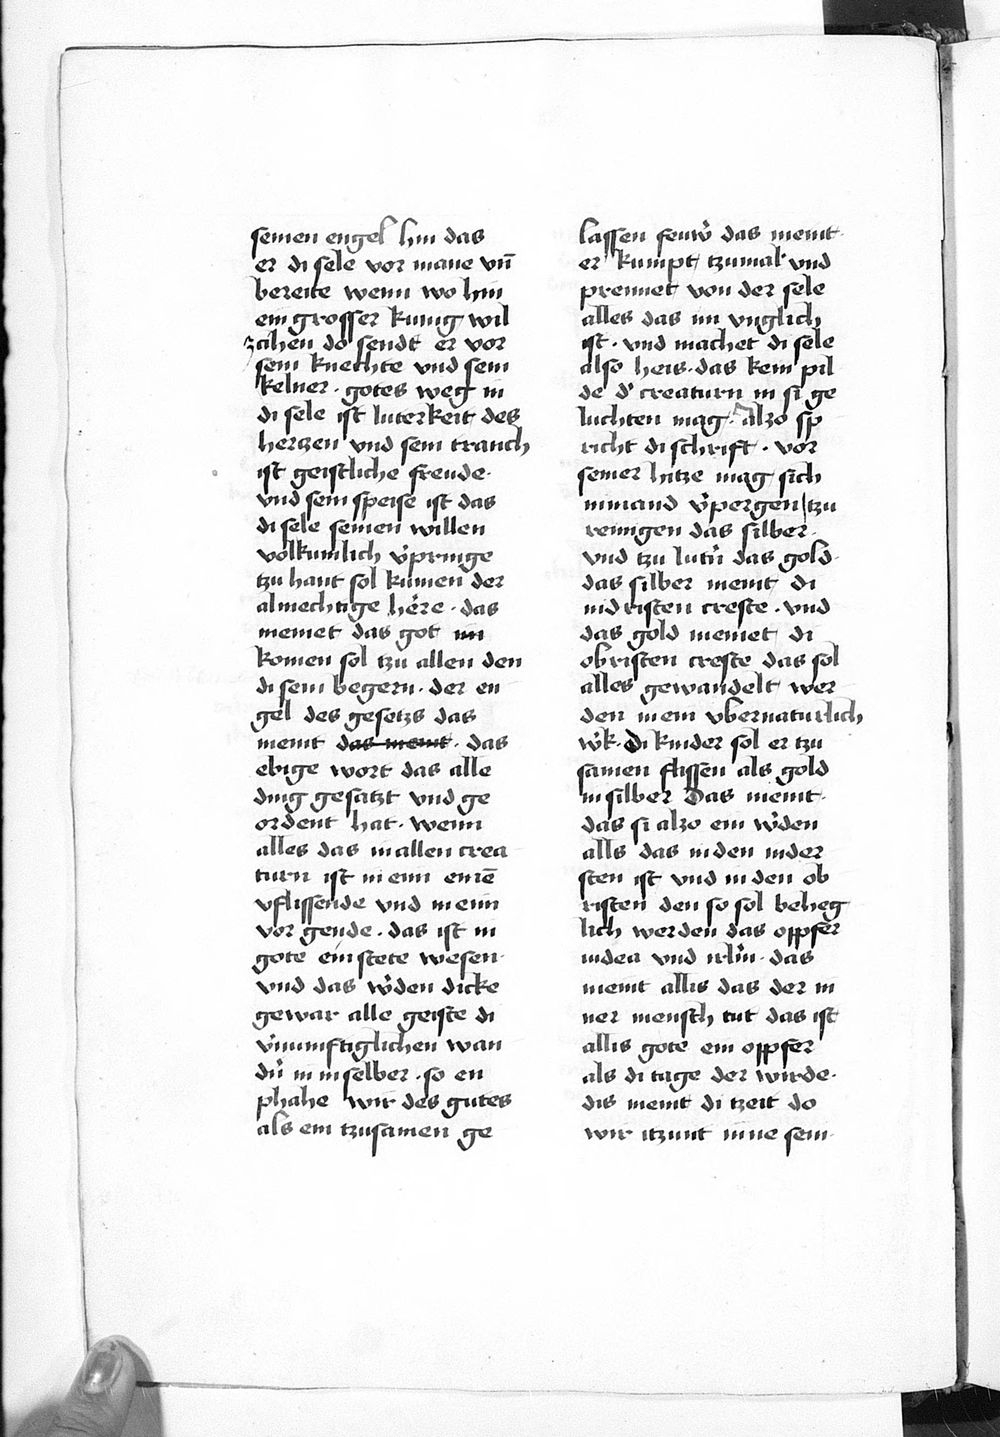 seinen engel hin das
er di sele vor mane vn̄
bereite wenn wo hin
ein grosser kunig wil
zcihen do sendt er vor
sein knechte vnd sein
kelner · gotes weg in
di sele ist luterkeit des
hertzen vnd sein tranch
ist geistliche freude ·
vnd sein speise ist das
di sele seinen willen
volkumlich v̉pringe
tzu hant sol kumen der
almechtige here · das
meinet das got in
komen sol tzu allen den
di sein begern · der en
gel des gesetzs das
meint das meint · das
ebige wort das alle
ding gesatzt vnd ge
ordent hat · wenn
alles das in allen crea
turn ist in ein einē
vflissende vnd in ein
vor gende · das ist in
gote ein stete wesen ·
vnd das w̉den dicke
gewar alle geiste di
v̉nunftiglichen wan
dn̉ in in selber · so en
phahe wir des gutes
als ein tzusamen ge
lassen feuw̉ das meint ·
er kumpt tzumal vnd
prennet von der sele
alles das im vnglich
ist · vnd machet di sele
also heis · das kein pil
de d̉ creaturn in si ge
luchten mag · alzo sp
richt di schrift · vor
seiner hitze mag sich
nimand v̉pergen tzu
reinigen das silber ·
vnd tzu lutn̉ das gold ·
das silber meint di
nidristen crefte · vnd
das gold meinet di
obristen crefte das sol
alles gewandelt wer
den in ein vbernaturlich
w̉k · Di kinder sol er tzu
samen flissen als gold
in silber Das meint ·
das si alzo ein w̉den
alls das in den nider
sten ist vnd in den ob
risten den so sol beheg
lich werden das oppfer
iudea vnd irlm̉ · das
meint allis das der in
ner mensch tut das ist
allis gote ein oppfer
als di tage der wirde ·
dis meint di tzeit do
wir itzunt inne sein ·